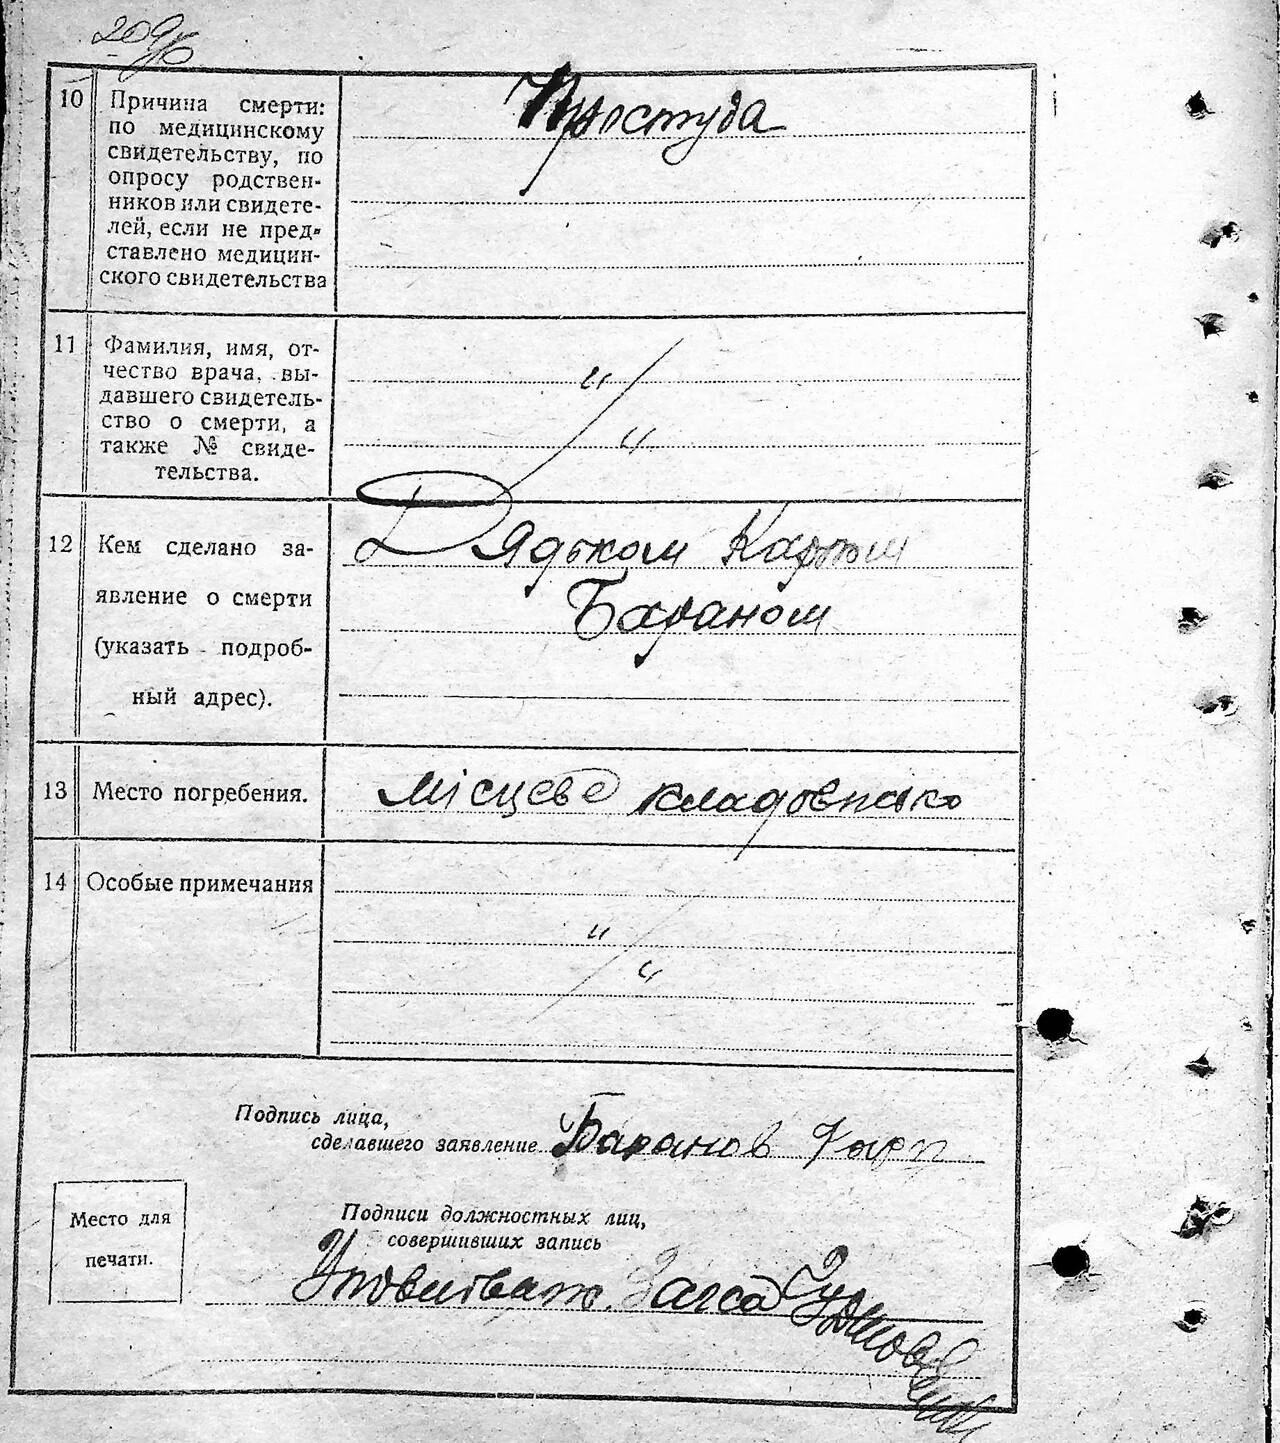 209
10
Причина смерти:
по медицинскому
свидетельству, по
опросу родствен-
ников или свидете-
лей, если не пред-
ставлено медицин-
ского свидетельства
Простуда
11
Фамилия, имя, от-
чество врача, вы-
давшего свидетель-
ство о смерти, а
также № свиде-
тельства.
"
"
12
Кем сделано за-
явление о смерти
(указать подроб-
ный адрес).
Дядьком Карпом
Бараном
13
Место погребения.
Місцеве кладовисько
14
Особые примечания
"
"
Подпись лица,
сделавшего заявление Баранов Карп
Место для
печати.
Подписи должностных лиц,
совершивших запись
Загса